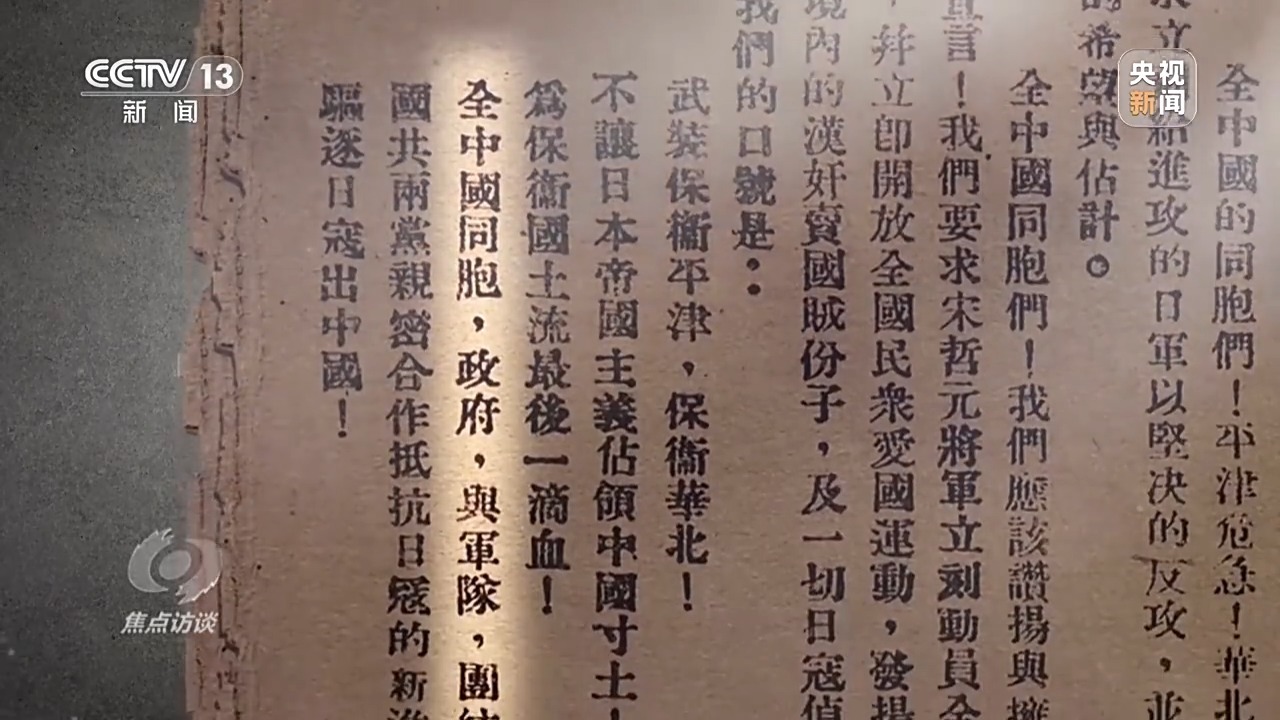 CCTV 13
新闻
央视
新闻
全中國的同胞們！平津危急！華北
立給進攻的日軍以堅决的反攻，並
的希望與佔計。
全中國同胞們！我們應該讚揚與擁
宣言！我們要求宋哲元將軍立刻動員全
，并立卽開放全國民衆愛國運動，發揚
境內的漢奸賣國賊份子，及一切日寇偵
我們的口號是：
武裝保衞平津，保衞華北！
不讓日本帝國主義佔領中國寸土！
爲保衞國土流最後一滴血！
全中國同胞，政府，與軍隊，團結
國共兩黨親密合作抵抗日寇的新
驅逐日寇出中國！
焦点访谈